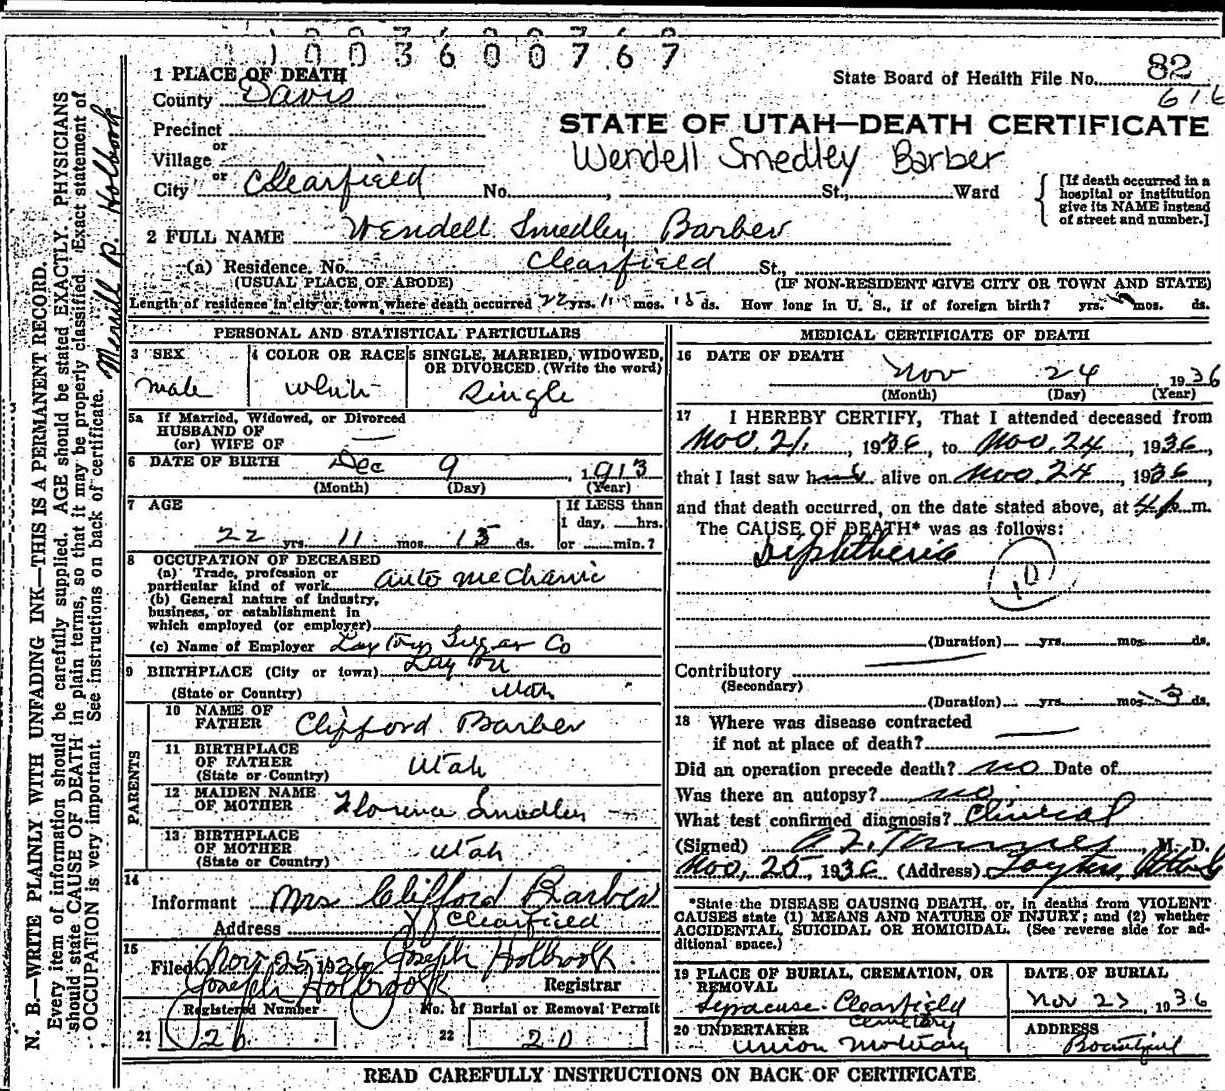 1003600767
1 PLACE OF DEATH
State Board of Health File No. 82
County Davis
616
Precinct
or
Village
or
City Clearfield No. , St., Ward
STATE OF UTAH—DEATH CERTIFICATE
Wendell Smedley Barber
[If death occurred in a
hospital or institution
give its NAME instead
of street and number.]
2 FULL NAME Wendell Smedley Barber
(a) Residence, No. Clearfield St.,
(USUAL PLACE OF ABODE) (IF NON-RESIDENT GIVE CITY OR TOWN AND STATE)
Length of residence in city or town where death occurred 22 yrs. 11 mos. 15 ds. How long in U. S., if of foreign birth? yrs. mos. ds.
PERSONAL AND STATISTICAL PARTICULARS
3 SEX
male
4 COLOR OR RACE
White
5 SINGLE, MARRIED, WIDOWED,
OR DIVORCED. (Write the word)
Single
5a If Married, Widowed, or Divorced
HUSBAND OF
(or) WIFE OF —
6 DATE OF BIRTH Dec 9, 1913
(Month) (Day) (Year)
7 AGE
22 yrs. 11 mos. 15 ds.
If LESS than
1 day, hrs.
or min.?
8 OCCUPATION OF DECEASED
(a) Trade, profession or
particular kind of work auto mechanic
(b) General nature of industry,
business, or establishment in
which employed (or employer)
(c) Name of Employer Layton Sugar Co
9 BIRTHPLACE (City or town) Layton
(State or Country) Utah
PARENTS
10 NAME OF
FATHER Clifford Barber
11 BIRTHPLACE
OF FATHER
(State or Country) Utah
12 MAIDEN NAME
OF MOTHER Florence Smedley
13 BIRTHPLACE
OF MOTHER
(State or Country) Utah
14
Informant Mrs Clifford Barber
Address Clearfield
15
Filed Nov 25 1936 Joseph Holbrook
Joseph Holbrook Registrar
Registered Number No. of Burial or Removal Permit
21 26 22 20
MEDICAL CERTIFICATE OF DEATH
16 DATE OF DEATH
Nov 24 1936
(Month) (Day) (Year)
17 I HEREBY CERTIFY, That I attended deceased from
Nov. 21, 1936, to Nov. 24, 1936,
that I last saw h alive on Nov. 24, 1936,
and that death occurred, on the date stated above, at 4 p m.
The CAUSE OF DEATH* was as follows:
Diphtheria
10
(Duration) yrs. mos. ds.
Contributory —
(Secondary)
(Duration) yrs. mos. 3 ds.
18 Where was disease contracted
if not at place of death? —
Did an operation precede death? no Date of
Was there an autopsy? no
What test confirmed diagnosis? Clinical
(Signed) M. D.
Nov. 25, 1936 (Address) Layton, Utah
*State the DISEASE CAUSING DEATH, or, in deaths from VIOLENT
CAUSES state (1) MEANS AND NATURE OF INJURY; and (2) whether
ACCIDENTAL, SUICIDAL OR HOMICIDAL. (See reverse side for ad-
ditional space.)
19 PLACE OF BURIAL, CREMATION, OR
REMOVAL
Syracuse-Clearfield
Cemetery
DATE OF BURIAL
Nov 1936
20 UNDERTAKER
Union Mortuary
ADDRESS
Bountiful
READ CAREFULLY INSTRUCTIONS ON BACK OF CERTIFICATE
N. B.—WRITE PLAINLY WITH UNFADING INK—THIS IS A PERMANENT RECORD.
Every item of information should be carefully supplied. AGE should be stated EXACTLY. PHYSICIANS
should state CAUSE OF DEATH in plain terms, so that it may be properly classified. Exact statement of
OCCUPATION is very important. See instructions on back of certificate.
Merrill D. Holbrook